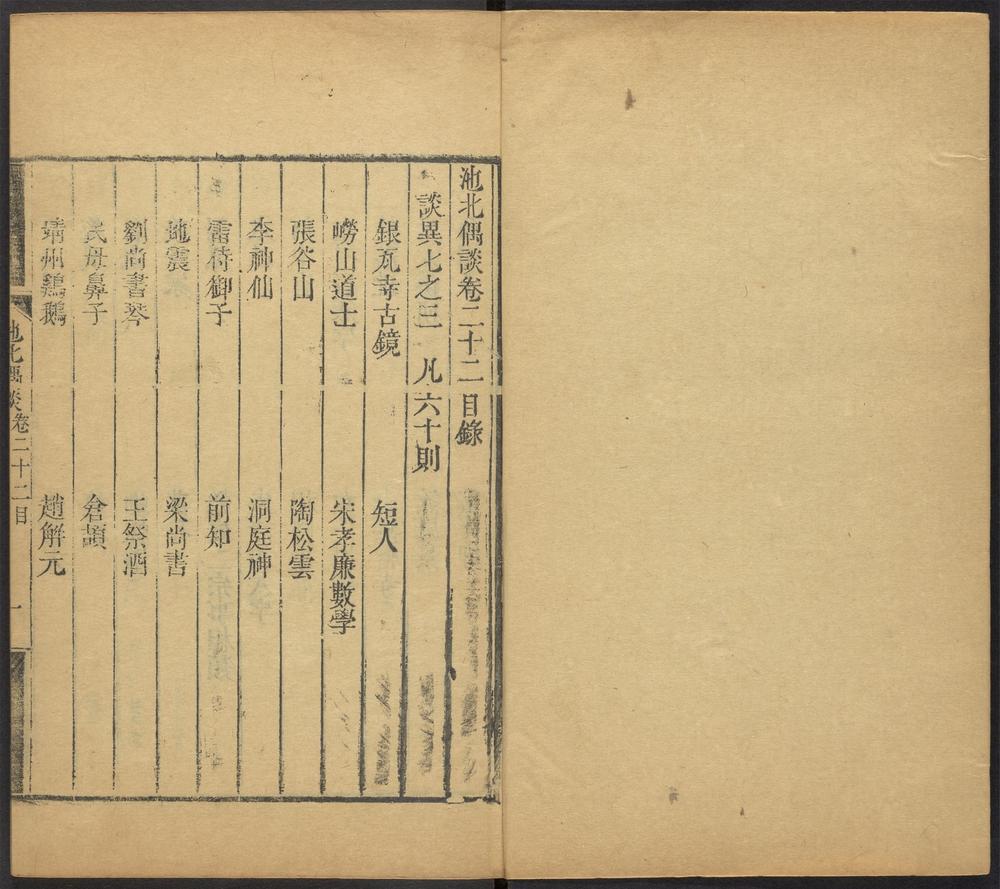 池北偶談卷二十二目錄
談異七之三 凡六十則
銀瓦寺古鏡 短人
嶗山道士 宋孝廉數學
張谷山 陶松雲
李神仙 洞庭神
雷侍御子 前知
地震 梁尚書
劉尚書琴 王祭酒
民母鼻子 倉頡
靖州鷄鵝 趙解元
池北偶談卷二十二目 一